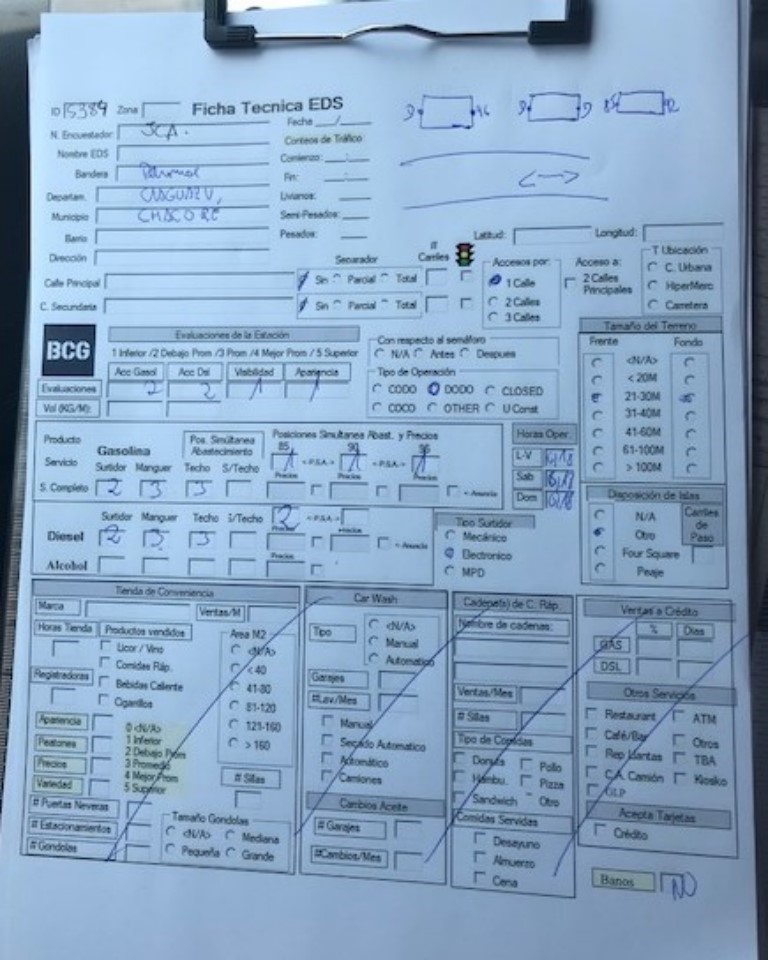 ID 15384 Zona Ficha Tecnica EDS
N. Encuestador JCA. Fecha __/__
Nombre EDS Conteos de Tráfico
Bandera Comienzo: __:__
Departam. CAAGUAZU, Fin: __:__
Municipio CHACORE Livianos:
Barrio Semi-Pesados:
Dirección Pesados:
Latitud: Longitud:
Separador # Carriles Accesos por: Acceso a: T Ubicación
Calle Principal Sin Parcial Total 1 Calle 2 Calles Principales C. Urbana
C. Secundaria Sin Parcial Total 2 Calles HiperMerc
3 Calles Carretera
BCG
Evaluaciones de la Estación
1 Inferior /2 Debajo Prom /3 Prom /4 Mejor Prom / 5 Superior
Acc Gasol Acc Dsl Visibilidad Apariencia
Evaluaciones 2 2 1 1
Vol (KG/M):
Con respecto al semáforo
N/A Antes Despues
Tipo de Operación
CODO DODO CLOSED
COCO OTHER U Const
Tamaño del Terreno
Frente Fondo
<N/A>
< 20M
21-30M
31-40M
41-60M
61-100M
> 100M
Producto Gasolina Pos. Simultánea Abastecimiento Posiciones Simultanea Abast. y Precios
Servicio Surtidor Manguer Techo S/Techo 85 1 <-P.S.A.-> 90 1 <-P.S.A.-> 95 1
S. Completo 2 3 3 Precios Precios Precios = Anuncia
Horas Oper.
L-V
Sab
Dom
Surtidor Manguer Techo S/Techo 2 <-P.S.A.->
Diesel 2 3 3 Precios Precios = Anuncia
Alcohol Precios
Tipo Surtidor
Mecánico
Electronico
MPD
Disposición de Islas
N/A Carriles de Paso
Otro
Four Square
Peaje
Tienda de Conveniencia
Marca Ventas/M
Horas Tienda Productos vendidos Area M2
Licor / Vino <N/A>
Comidas Ráp. < 40
Registradoras Bebidas Caliente 41-80
Cigarrillos 81-120
Apariencia 0 <N/A> 121-160
Peatones 1 Inferior > 160
Precios 2 Debajo Prom
Variedad 3 Promedio
4 Mejor Prom # Sillas
5 Superior
# Puertas Neveras
# Estacionamientos
# Gondolas
Tamaño Gondolas
<N/A> Mediana
Pequeña Grande
Car Wash
Tipo <N/A>
Manual
Automatico
Garajes
#Lav/Mes
Manual
Secado Automatico
Automático
Camiones
Cambios Aceite
# Garajes
#Cambios/Mes
Cadena(s) de C. Ráp.
Nombre de cadenas:
Ventas/Mes
# Sillas
Tipo de Comidas
Donuts Pollo
Hambu. Pizza
Sandwich Otro
Comidas Servidas
Desayuno
Almuerzo
Cena
Ventas a Crédito
% Dias
GAS
DSL
Otros Servicios
Restaurant ATM
Café/Bar Otros
Rep Llantas TBA
C.A. Camión Kiosko
GLP
Acepta Tarjetas
Crédito
Banos NO